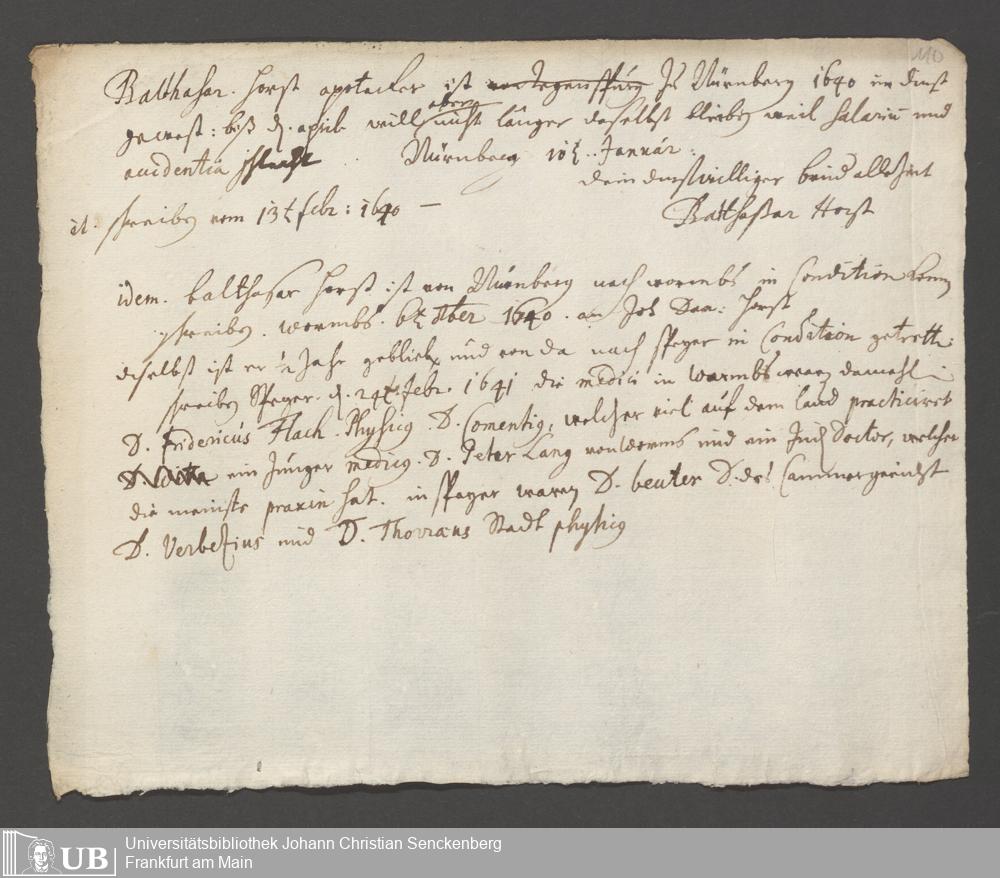 110
Balthasar Horst apotecker ist von Regenspurg Zu Nürnberg 1640 in dinst
gewest: biß d. april will aber nicht länger daselbst bleiben weil salariu und
accidentia schlecht Nürnberg 10t. Januar:
dein dinstwilliger bruder allezeit
Balthaßar Horst
it. schreiben vom 13t febr: 1640 —
idem. balthasar Horst ist von Nürnberg nach wormbs in Condition kom
schreiben. wormbs. 6t 1640. an Joh Dan: Horst
daselbst ist er 1/2 Jahr geblieben und von da nach speyer in Condition getretten
schreiben Speyer. d. 24t Febr. 1641 die medici in wormbs waren damahl
D. Fridericus Flach. Physicg. D. Comentig, welcher viel auf dem land practiciret
D. ein Junger medicg. D. Peter Lang von Worms und ein Jud Doctor, welcher
die meinste praxin hat. in speyer waren D. beuter D. des Cammergericht
D. Verbezius und D. Thorræus Stadt physicg
UB
Universitätsbibliothek Johann Christian Senckenberg
Frankfurt am Main